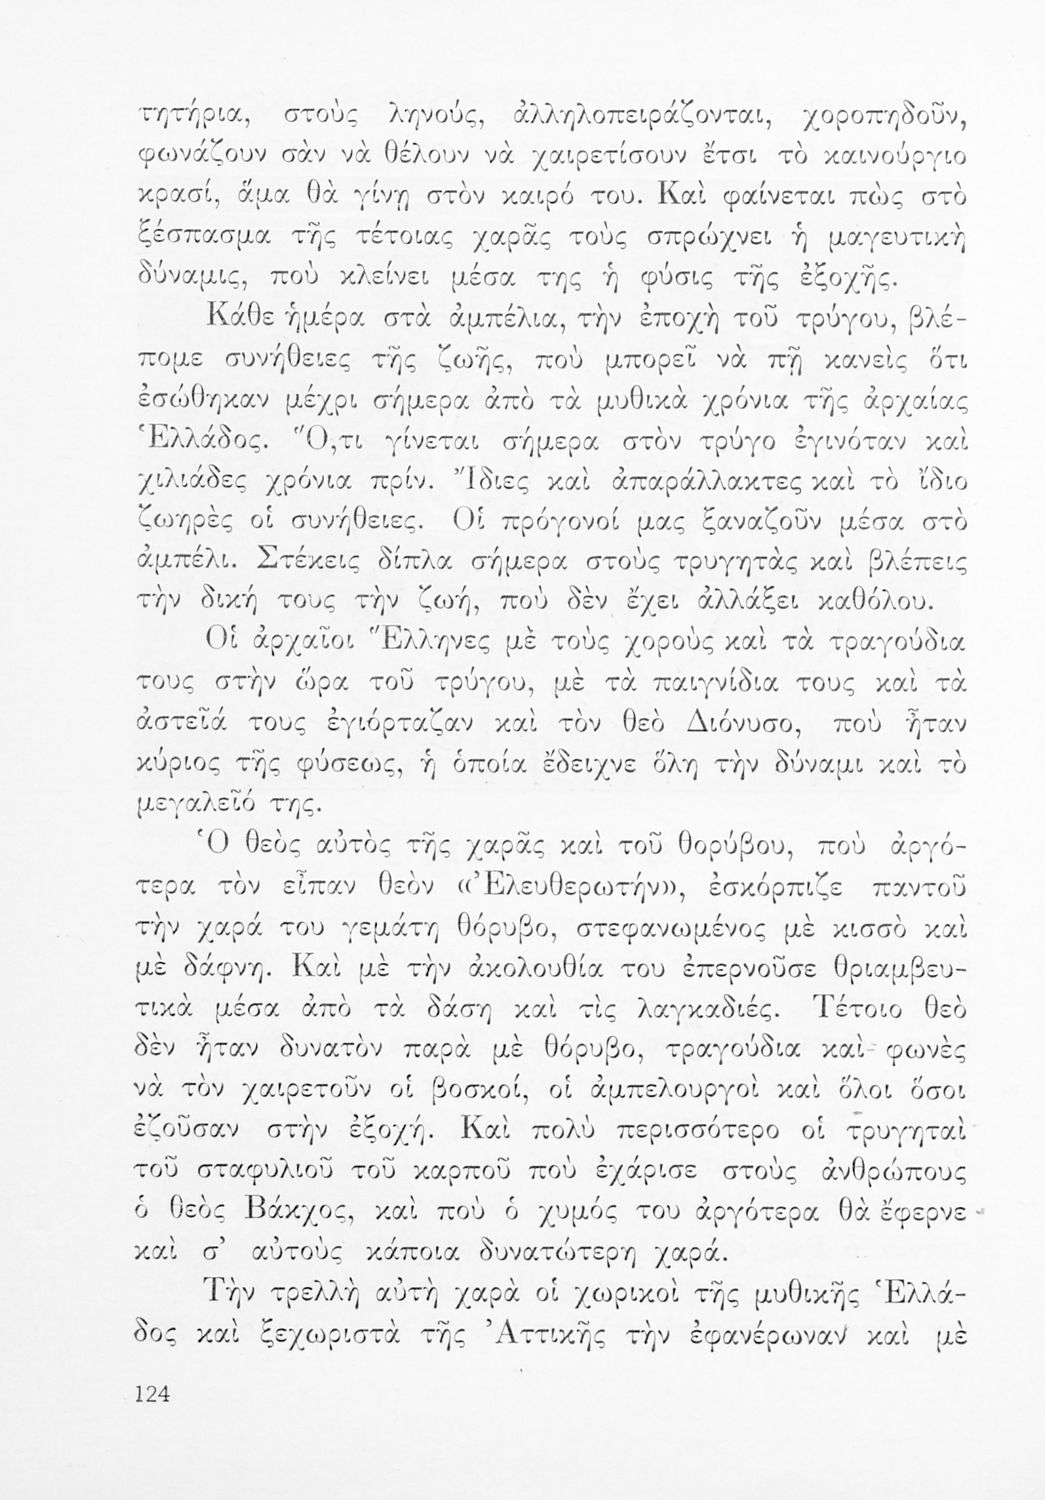 τητήρια, στοὺς ληνούς, ἀλληλοπειράζονται, χοροπηδοῦν,
φωνάζουν σὰν νὰ θέλουν νὰ χαιρετίσουν ἔτσι τὸ καινούργιο
κρασί, ἅμα θὰ γίνῃ στὸν καιρό του. Καὶ φαίνεται πὼς στὸ
ξέσπασμα τῆς τέτοιας χαρᾶς τοὺς σπρώχνει ἡ μαγευτικὴ
δύναμις, ποὺ κλείνει μέσα της ἡ φύσις τῆς ἐξοχῆς.
Κάθε ἡμέρα στὰ ἀμπέλια, τὴν ἐποχὴ τοῦ τρύγου, βλέ-
πομε συνήθειες τῆς ζωῆς, ποὺ μπορεῖ νὰ πῇ κανεὶς ὅτι
ἐσώθηκαν μέχρι σήμερα ἀπὸ τὰ μυθικὰ χρόνια τῆς ἀρχαίας
Ἑλλάδος. Ὅ,τι γίνεται σήμερα στὸν τρύγο ἐγινόταν καὶ
χιλιάδες χρόνια πρίν. Ἴδιες καὶ ἀπαράλλακτες καὶ τὸ ἴδιο
ζωηρὲς οἱ συνήθειες. Οἱ πρόγονοί μας ξαναζοῦν μέσα στὸ
ἀμπέλι. Στέκεις δίπλα σήμερα στοὺς τρυγητὰς καὶ βλέπεις
τὴν δική τους τὴν ζωή, ποὺ δὲν ἔχει ἀλλάξει καθόλου.
Οἱ ἀρχαῖοι Ἕλληνες μὲ τοὺς χοροὺς καὶ τὰ τραγούδια
τους στὴν ὥρα τοῦ τρύγου, μὲ τὰ παιγνίδια τους καὶ τὰ
ἀστεῖά τους ἐγιόρταζαν καὶ τὸν θεὸ Διόνυσο, ποὺ ἦταν
κύριος τῆς φύσεως, ἡ ὁποία ἔδειχνε ὅλη τὴν δύναμι καὶ τὸ
μεγαλεῖό της.
Ὁ θεὸς αὐτὸς τῆς χαρᾶς καὶ τοῦ θορύβου, ποὺ ἀργό-
τερα τὸν εἶπαν θεὸν «Ἐλευθερωτήν», ἐσκόρπιζε παντοῦ
τὴν χαρά του γεμάτη θόρυβο, στεφανωμένος μὲ κισσὸ καὶ
μὲ δάφνη. Καὶ μὲ τὴν ἀκολουθία του ἐπερνοῦσε θριαμβευ-
τικὰ μέσα ἀπὸ τὰ δάση καὶ τὶς λαγκαδιές. Τέτοιο θεὸ
δὲν ἦταν δυνατὸν παρὰ μὲ θόρυβο, τραγούδια καὶ φωνὲς
νὰ τὸν χαιρετοῦν οἱ βοσκοί, οἱ ἀμπελουργοὶ καὶ ὅλοι ὅσοι
ἐζοῦσαν στὴν ἐξοχή. Καὶ πολὺ περισσότερο οἱ τρυγηταὶ
τοῦ σταφυλιοῦ τοῦ καρποῦ ποὺ ἐχάρισε στοὺς ἀνθρώπους
ὁ θεὸς Βάκχος, καὶ ποὺ ὁ χυμός του ἀργότερα θὰ ἔφερνε
καὶ σ' αὐτοὺς κάποια δυνατώτερη χαρά.
Τὴν τρελλὴ αὐτὴ χαρὰ οἱ χωρικοὶ τῆς μυθικῆς Ἑλλά-
δος καὶ ξεχωριστὰ τῆς Ἀττικῆς τὴν ἐφανέρωναν καὶ μὲ
124